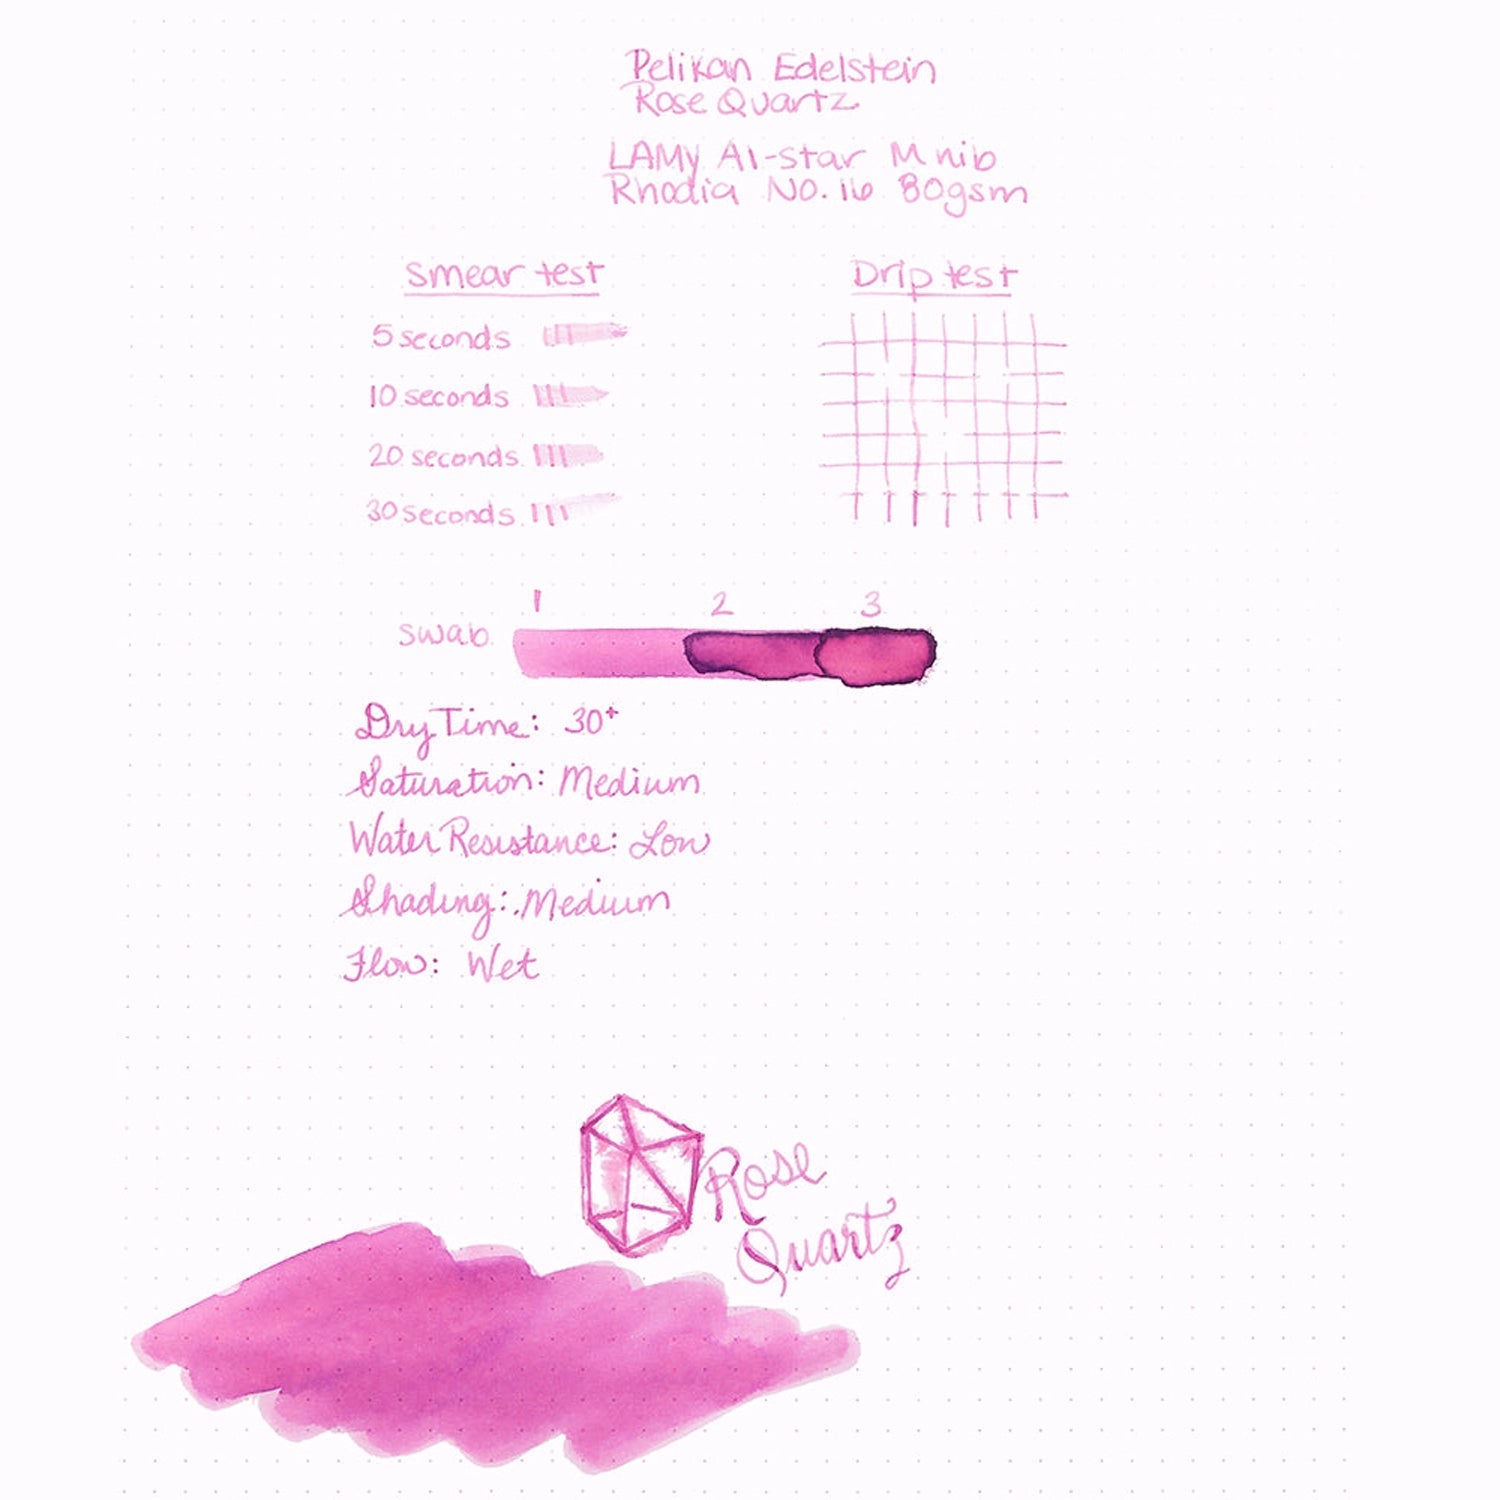 Pelikan Edelstein
Rose Quartz
LAMY Al-Star M nib
Rhodia No. 16 80gsm
Smear test
Drip test
5 seconds
10 seconds
20 seconds
30 seconds
1 2 3
Swab
Dry Time: 30+
Saturation: Medium
Water Resistance: Low
Shading: Medium
Flow: Wet
Rose
Quartz